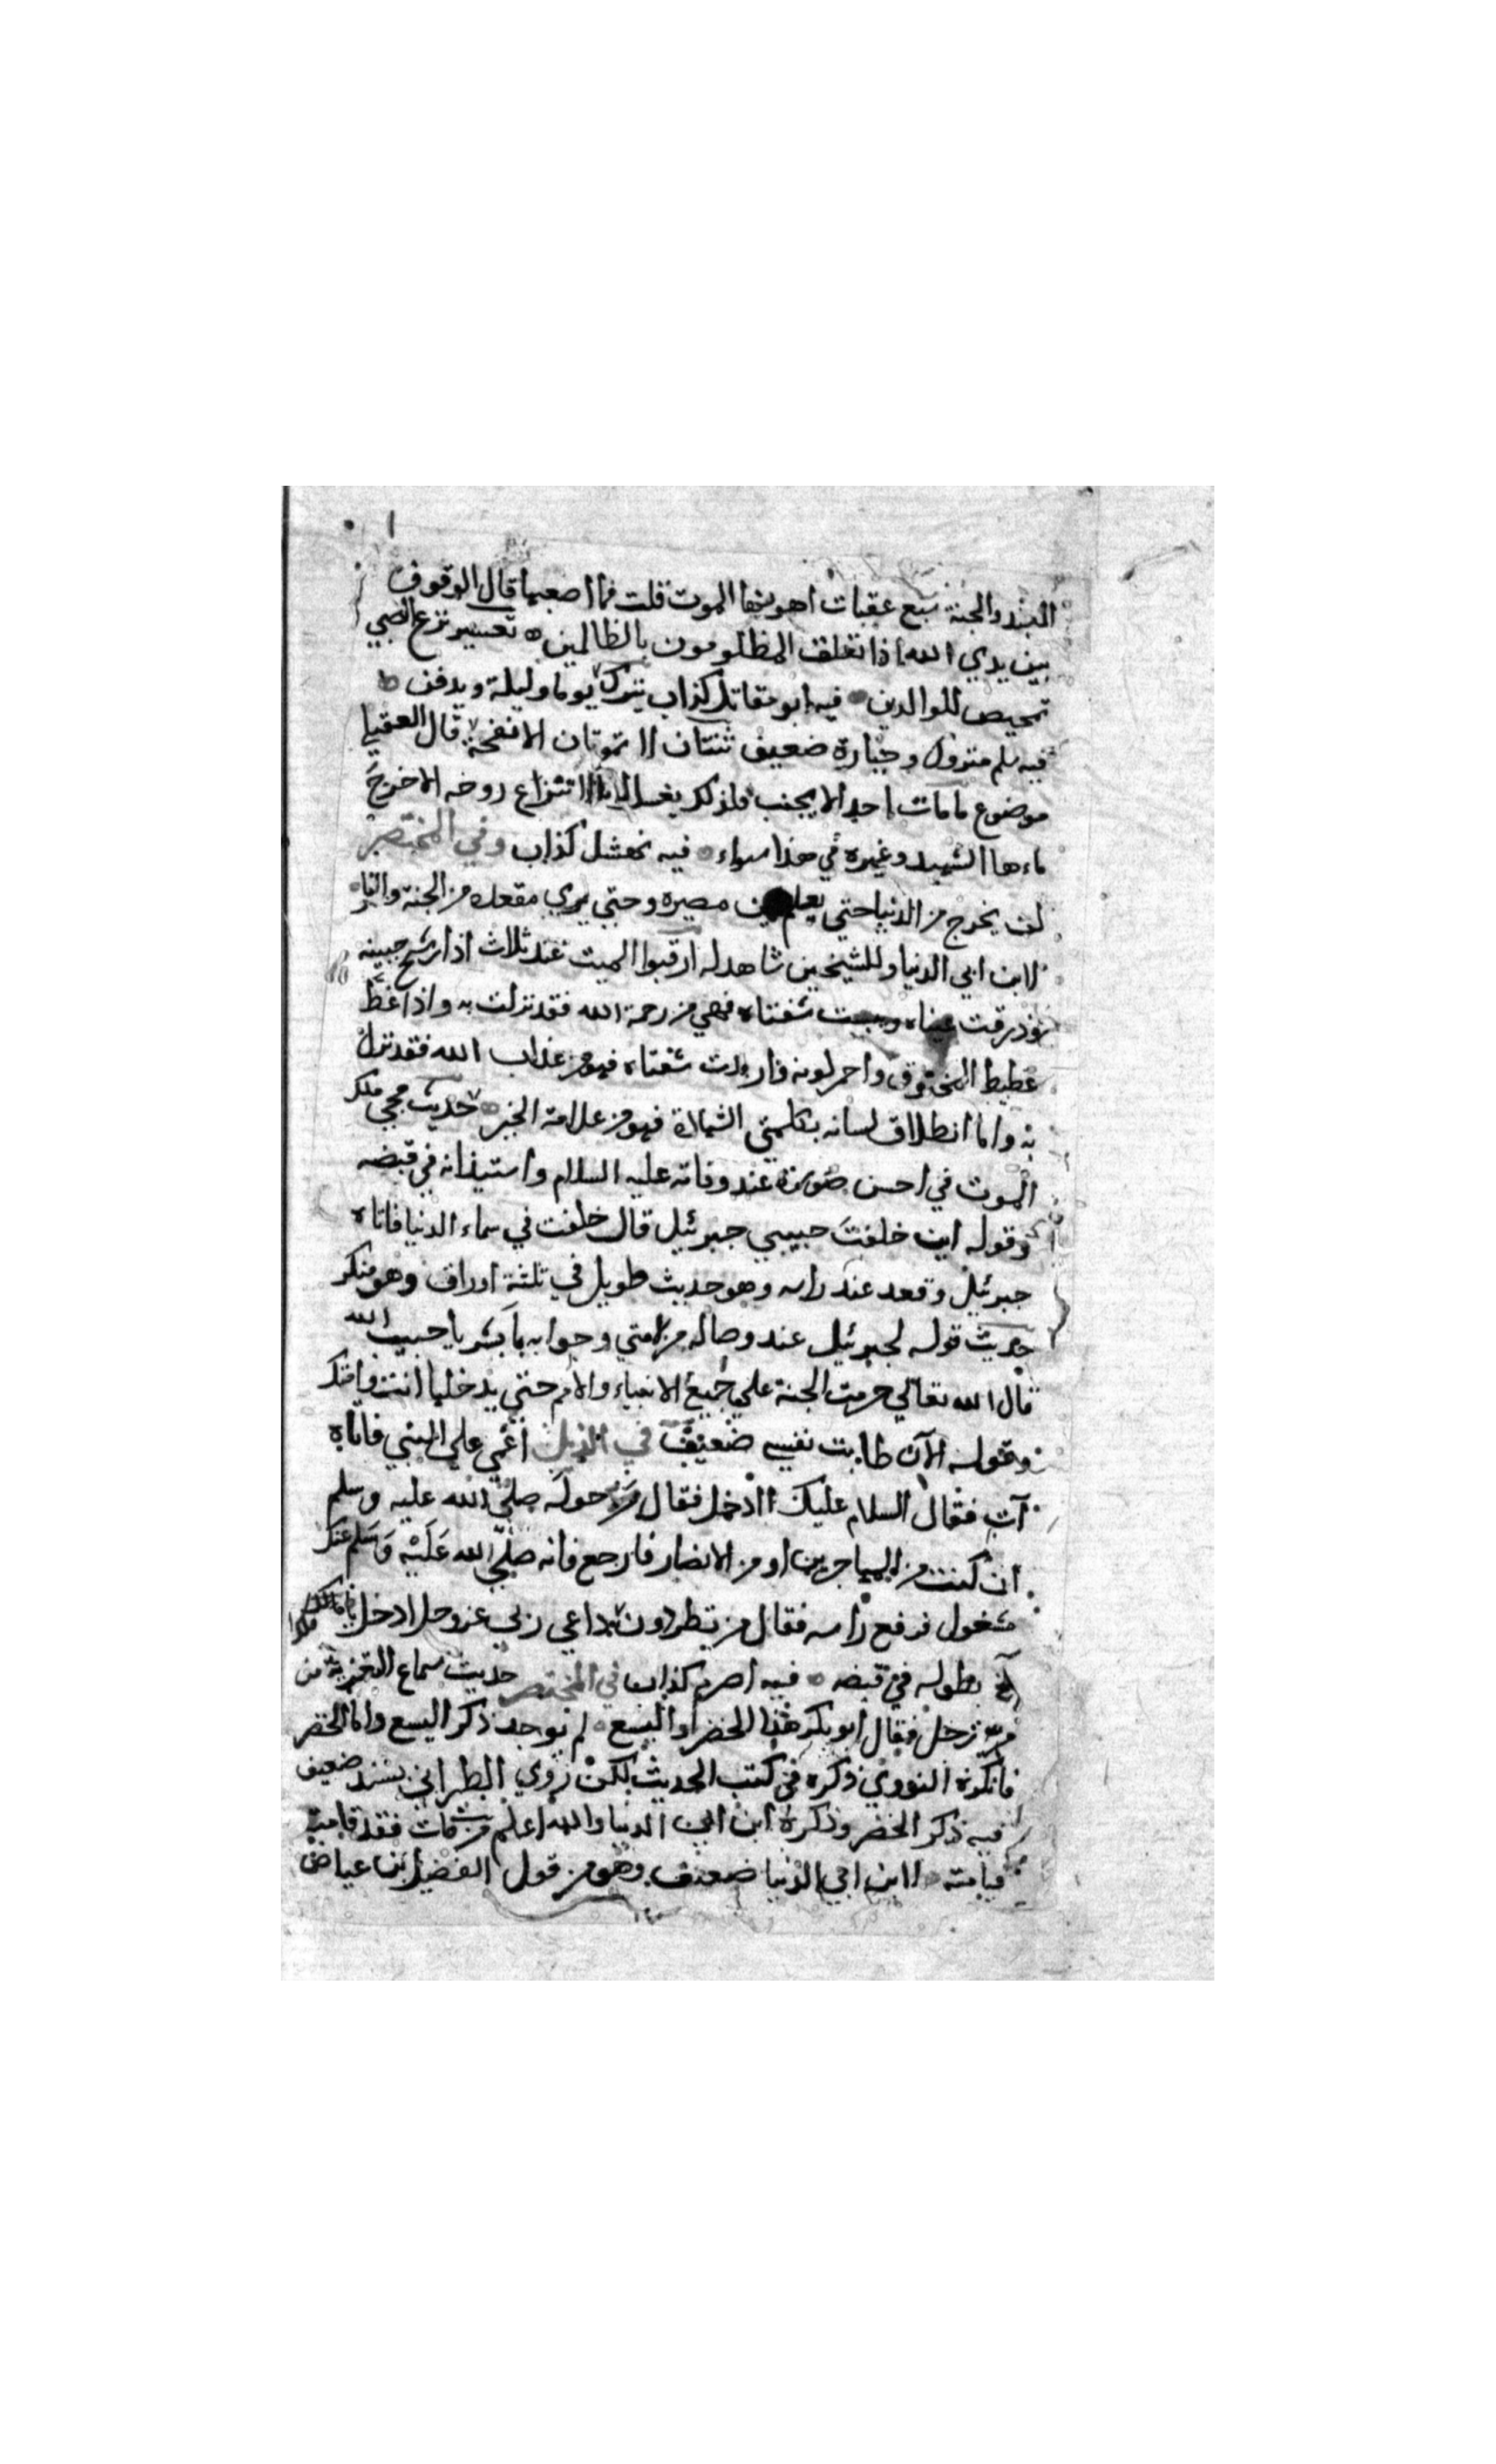 العبد والجنة سبع عقبات اهونها الموت قلت فما اصعبها قال الوقوف
بين يدي الله اذا تعلق المظلومون بالظالمين تعسير نزع الصبي
تمحيص للوالدين فيه ابو مقاتل كذاب يترك يوما وليلة ويدفن
فيه سلم متروك وجبارة ضعيف ثنتان لا تموتان الانفحة قال العقيلي
موضوع ما مات احد الا يجنب فلذلك يغسل لانتزاع روحه الا خرج
ماءها الشهيد وغيره في هذا سواء فيه نهشل كذاب وفي المختصر
لن يخرج من الدنيا حتى يعلم اين مصيره وحتي يري مقعده من الجنة والنار
لابن ابي الدنيا وللشيخين شاهد له ارقبوا الميت عند ثلاث اذا رشح جبينه
وذرفت عيناه ويبست شفتاه فهي من رحمة الله فقد نزلت به واذا غط
غطيط المخنوق واحمر لونه واربدت شفتاه فهو من عذاب الله فقد نزل
به واما انطلاق لسانه بكلمتي الشهادة فهو من علامة الخير حديث مجي ملك
الموت في احسن صورة عند وفاته عليه السلام واستيذانه في قبضه
وقوله اين خلفت حبيبي جبرئيل قال خلفت في سماء الدنيا فاتاه
جبرئيل وقعد عند راسه وهو حديث طويل في ثلثة اوراق وهو منكر
حديث قوله لجبرئيل عند وصاله من لامتي وجوابه بابشر يا حبيب الله
قال الله تعالي حرمت الجنة علي جميع الانبياء والامم حتي يدخلها انت وامتك
وقوله الآن طابت نفسي ضعيف في الذيل اغمي علي النبي فاتاه
آت فقال السلام عليك اادخل فقال من حوله صلي الله عليه وسلم
ان كنت من المهاجرين او من الانصار فارجع فانه صلي الله عليه وسلم عنك
مشغول فرفع راسه فقال من تطردون داعي ربي عز وجل ادخل يا ملك
الخ بطوله في قبضه فيه اصرم كذاب في المختصر حديث سماع التعزية من
رجل فقال ابو بكر هذا الخضر او اليسع لم يوجد ذكر اليسع واما الخضر
فانكره النووي ذكره في كتب الحديث لكن روي الطبراني بسند ضعيف
فيه ذكر الخضر وذكره ابن ابي الدنيا والله اعلم من مات فقد قامت
قيامته لابن ابي الدنيا ضعيف وهو من قول الفضيل بن عياض